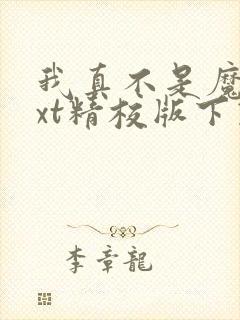 我真不是魔
xt精校版下
李章龍